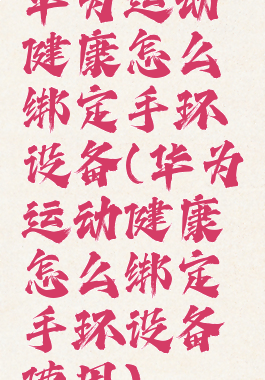 华为运动
健康怎么
绑定手环
设备(华为
运动健康
怎么绑定
手环设备